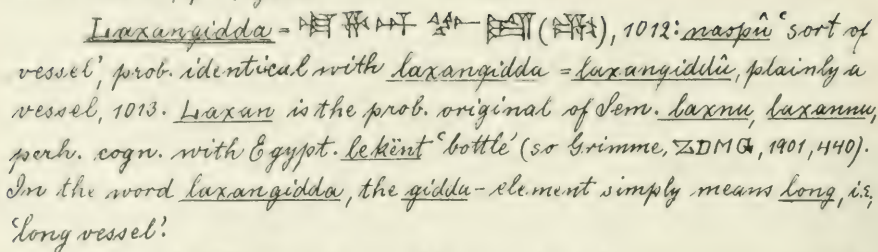 Laxangidda = (), 1012: naspû ‘sort of
vessel’, prob. identical with laxangidda = laxangiddû, plainly a
vessel, 1013. Laxan is the prob. original of Sem. laxnu, laxannu,
perh. cogn. with Egypt. lekënt ‘bottle’ (so Grimme, ZDMG, 1901, 440).
In the word laxangidda, the gidda-element simply means long, i.e.,
‘long vessel’.